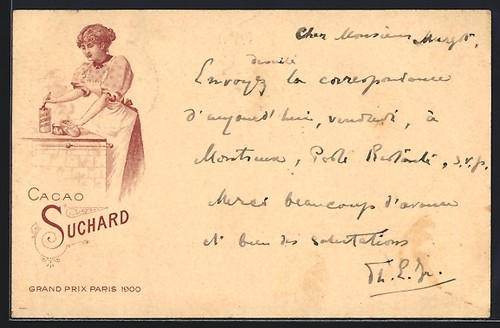 Cher Monsieur Margot,
Envoyez la correspondance
d'aujourd'hui, vendredi, à
Montreux, Poste Restante, s.v.p.
Merci beaucoup d'avance
et bien des salutations
CACAO
SUCHARD
GRAND PRIX PARIS 1900